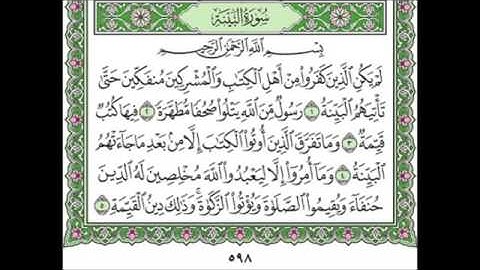 سُورَةُ البَيِّنَةِ
بِسْمِ اللَّهِ الرَّحْمَٰنِ الرَّحِيمِ
لَمْ يَكُنِ الَّذِينَ كَفَرُوا مِنْ أَهْلِ الْكِتَابِ وَالْمُشْرِكِينَ مُنفَكِّينَ حَتَّىٰ
تَأْتِيَهُمُ الْبَيِّنَةُ ١ رَسُولٌ مِّنَ اللَّهِ يَتْلُوا صُحُفًا مُّطَهَّرَةً ٢ فِيهَا كُتُبٌ
قَيِّمَةٌ ٣ وَمَا تَفَرَّقَ الَّذِينَ أُوتُوا الْكِتَابَ إِلَّا مِنْ بَعْدِ مَا جَاءَتْهُمُ
الْبَيِّنَةُ ٤ وَمَا أُمِرُوا إِلَّا لِيَعْبُدُوا اللَّهَ مُخْلِصِينَ لَهُ الدِّينَ
حُنَفَاءَ وَيُقِيمُوا الصَّلَوٰةَ وَيُؤْتُوا الزَّكَوٰةَ ۚ وَذَٰلِكَ دِينُ الْقَيِّمَةِ ٥
٥٩٨